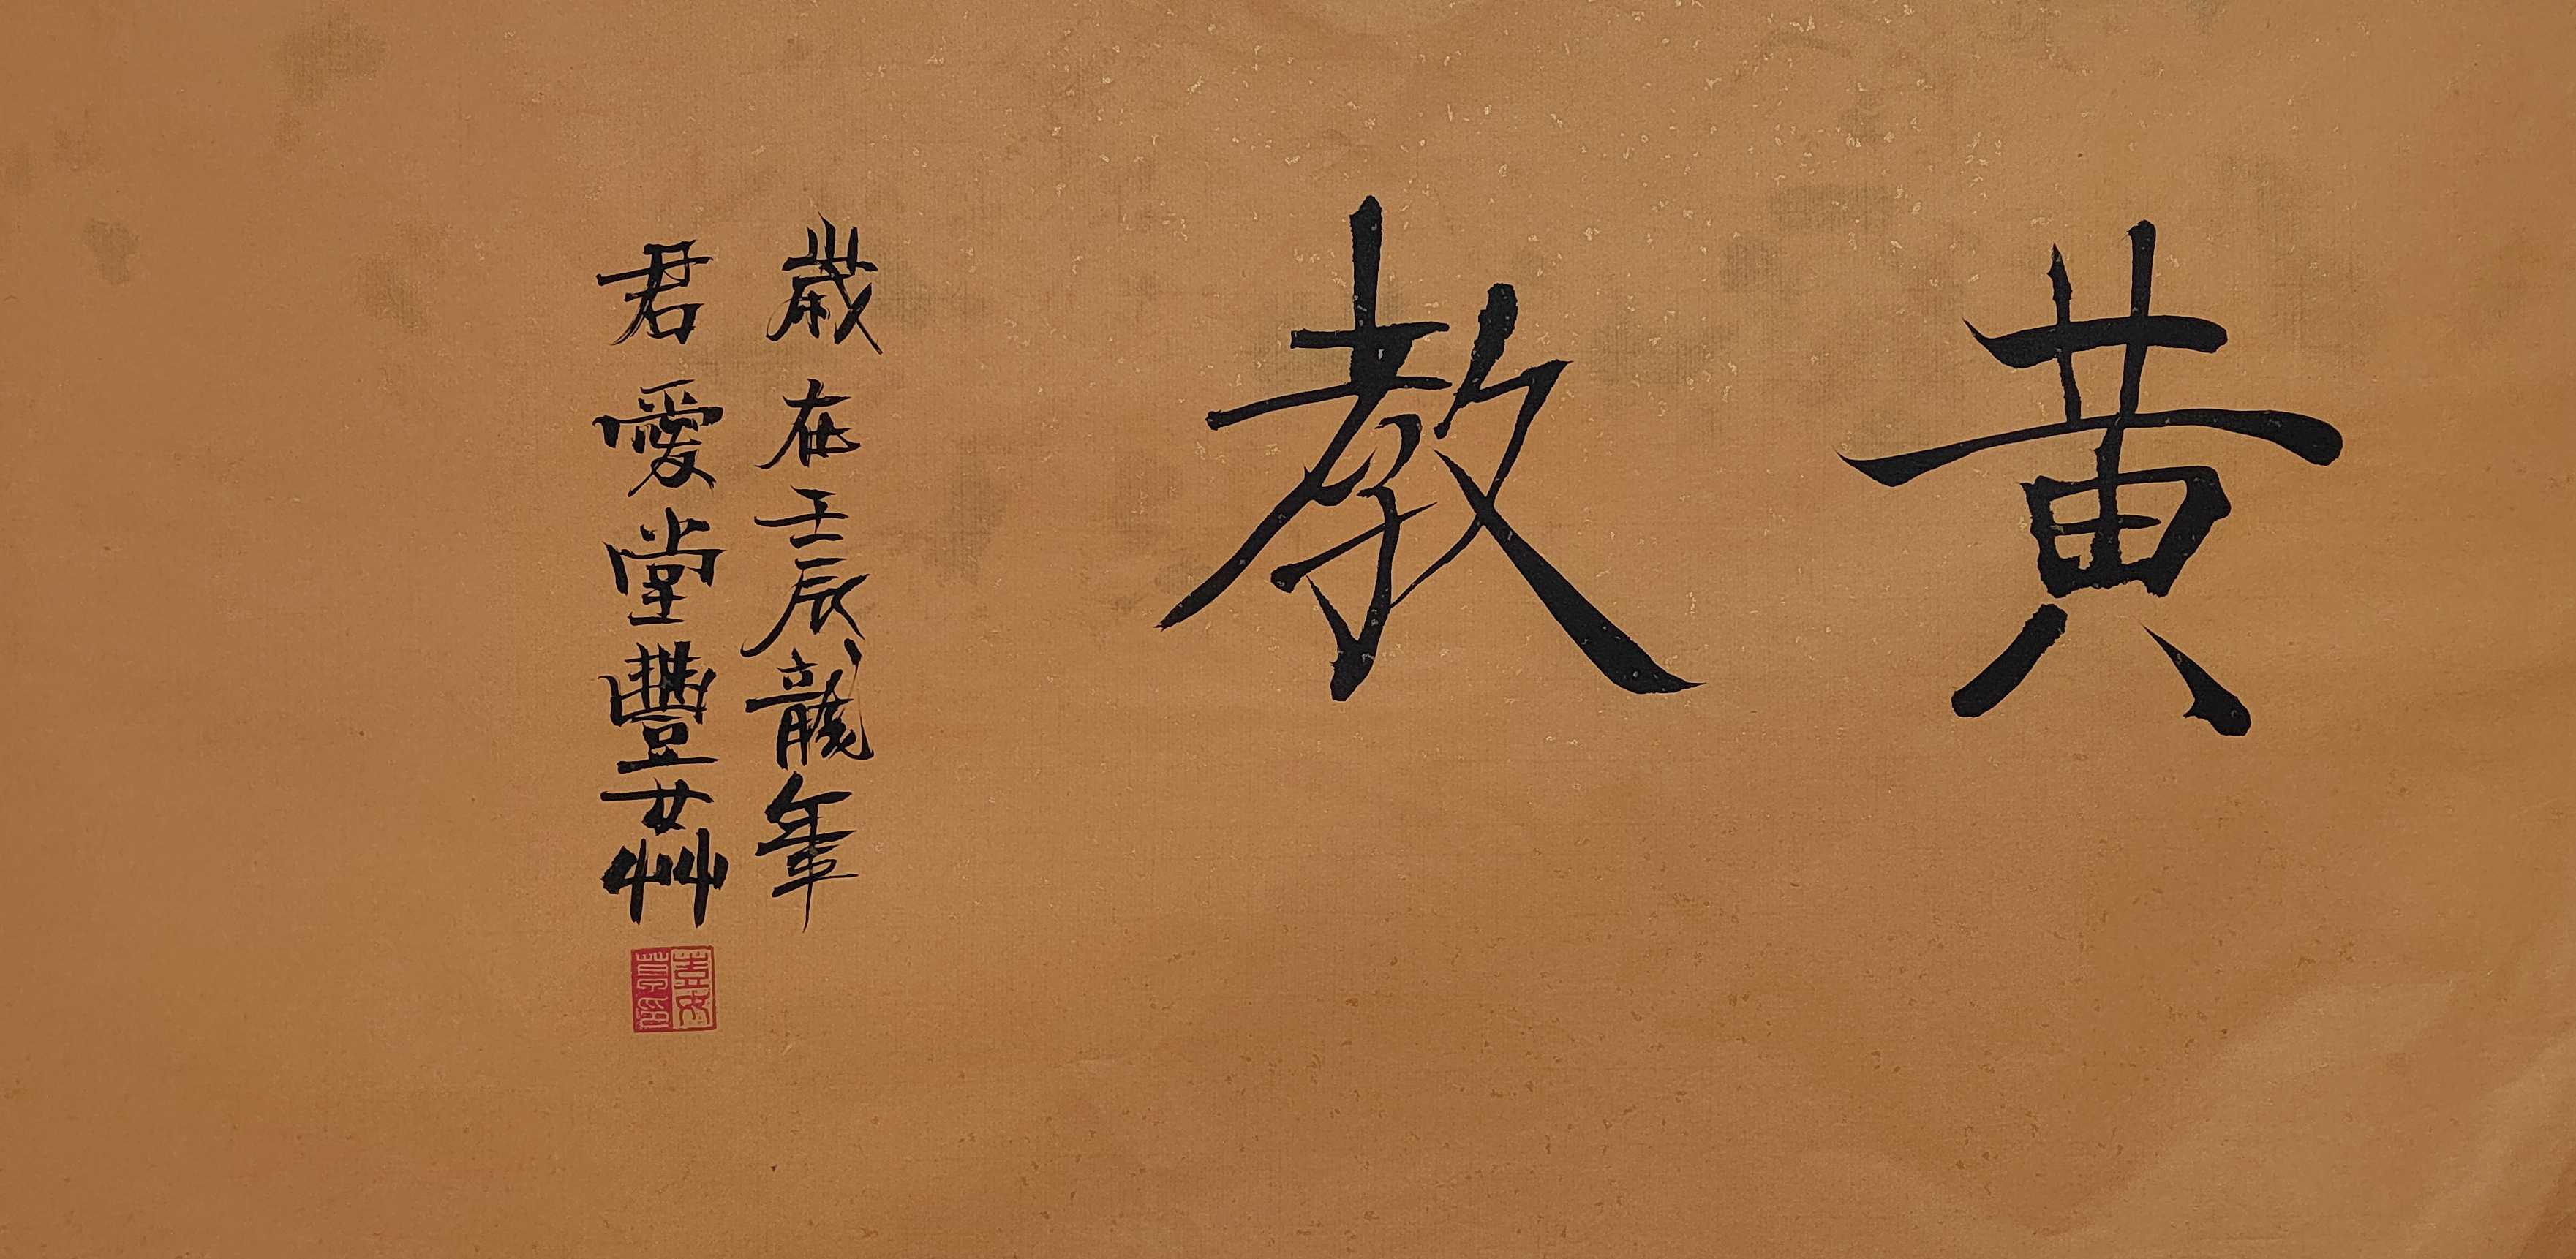 黄教
歲在壬辰龍年
君愛堂豐女艸